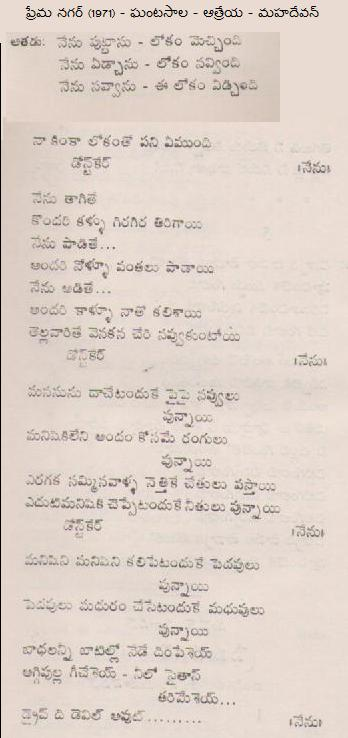 ప్రేమ నగర్ (1971) - ఘంటసాల - ఆత్రేయ - మహదేవన్
అతడు: నేను పుట్టాను - లోకం మెచ్చింది
నేను ఏడ్చాను - లోకం నవ్వింది
నేను నవ్వాను - ఈ లోకం ఏడ్చింది
నా కింకా లోకంతో పని ఏముంది
డోన్ట్‌కేర్ ॥నేను॥
నేను తాగితే
కొందరి కళ్ళు గిరగిర తిరిగాయి
నేను పాడితే...
అందరి నోళ్ళూ వంతలు పాడాయి
నేను ఆడితే...
అందరి కాళ్ళూ నాతో కలిశాయి
తెల్లవారితే వెనకన చేరి నవ్వుకుంటాయి
డోన్ట్‌కేర్ ॥నేను॥
మనసును దాచేటందుకే పైపై నవ్వులు
వున్నాయి
మనిషికిలేని అందం కోసమే రంగులు
వున్నాయి
ఎరగక నమ్మినవాళ్ళ నెత్తికే చేతులు వస్తాయి
ఎదుటిమనిషికి చెప్పేటందుకే నీతులు వున్నాయి
డోన్ట్‌కేర్ ॥నేను॥
మనిషిని మనిషిని కలిపేటందుకే పెదవులు
వున్నాయి
పెదవులు మధురం చేసేటందుకే మధువులు
వున్నాయి
బాధలన్ని బాటిల్లో నేడే దింపేశెయ్
అగ్గిపుల్ల గీచేశెయ్ - నీలో సైతాన్
తరిమేశెయ్...
డ్రైవ్ ది డెవిల్ అవుట్......... ॥నేను॥